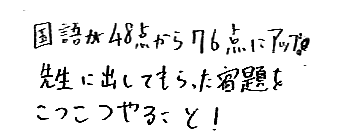 国語が48点から76点にアップ!
先生に出してもらった宿題を
こつこつやること!